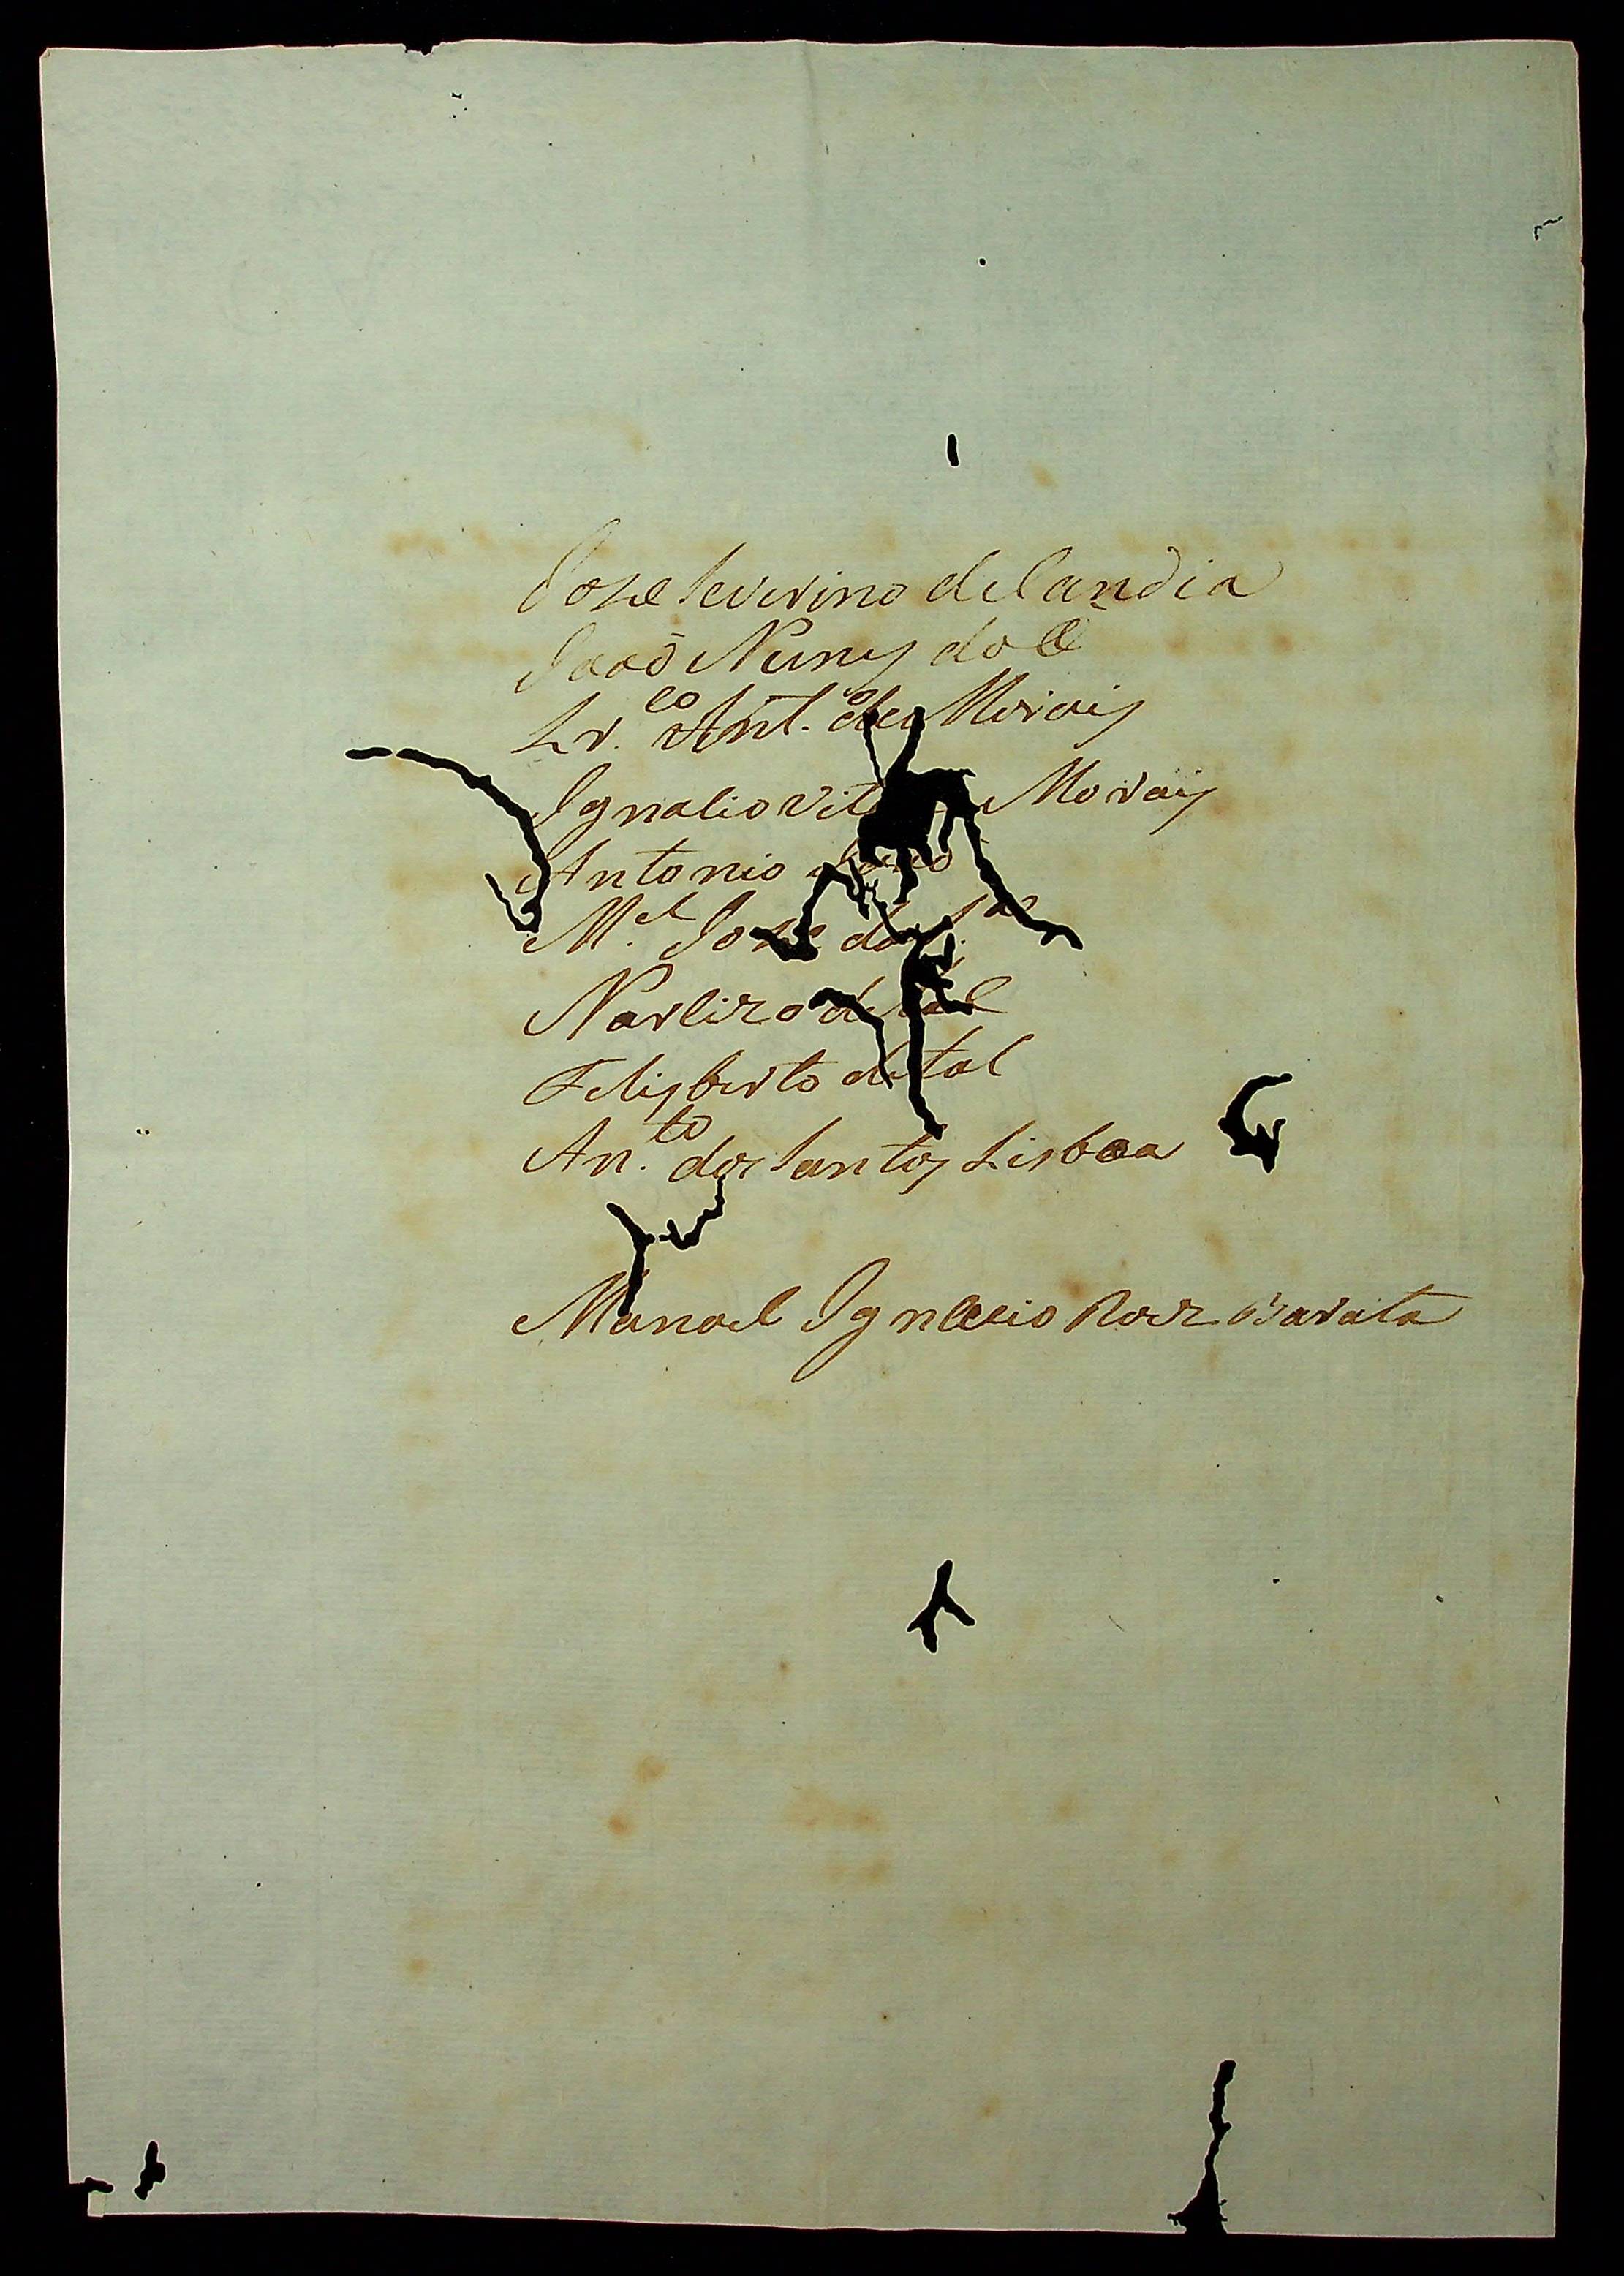 Joze Severino de Candia
Joaõ Nunes do Ó
Fr.co Ant.o de Morais
Ignacio Vit Morais
Antonio
M.el Joze de tal
Narcizo de tal
Felisberto de tal
An.to dos Santos Lisboa
Manoel Ignacio Roiz Barata